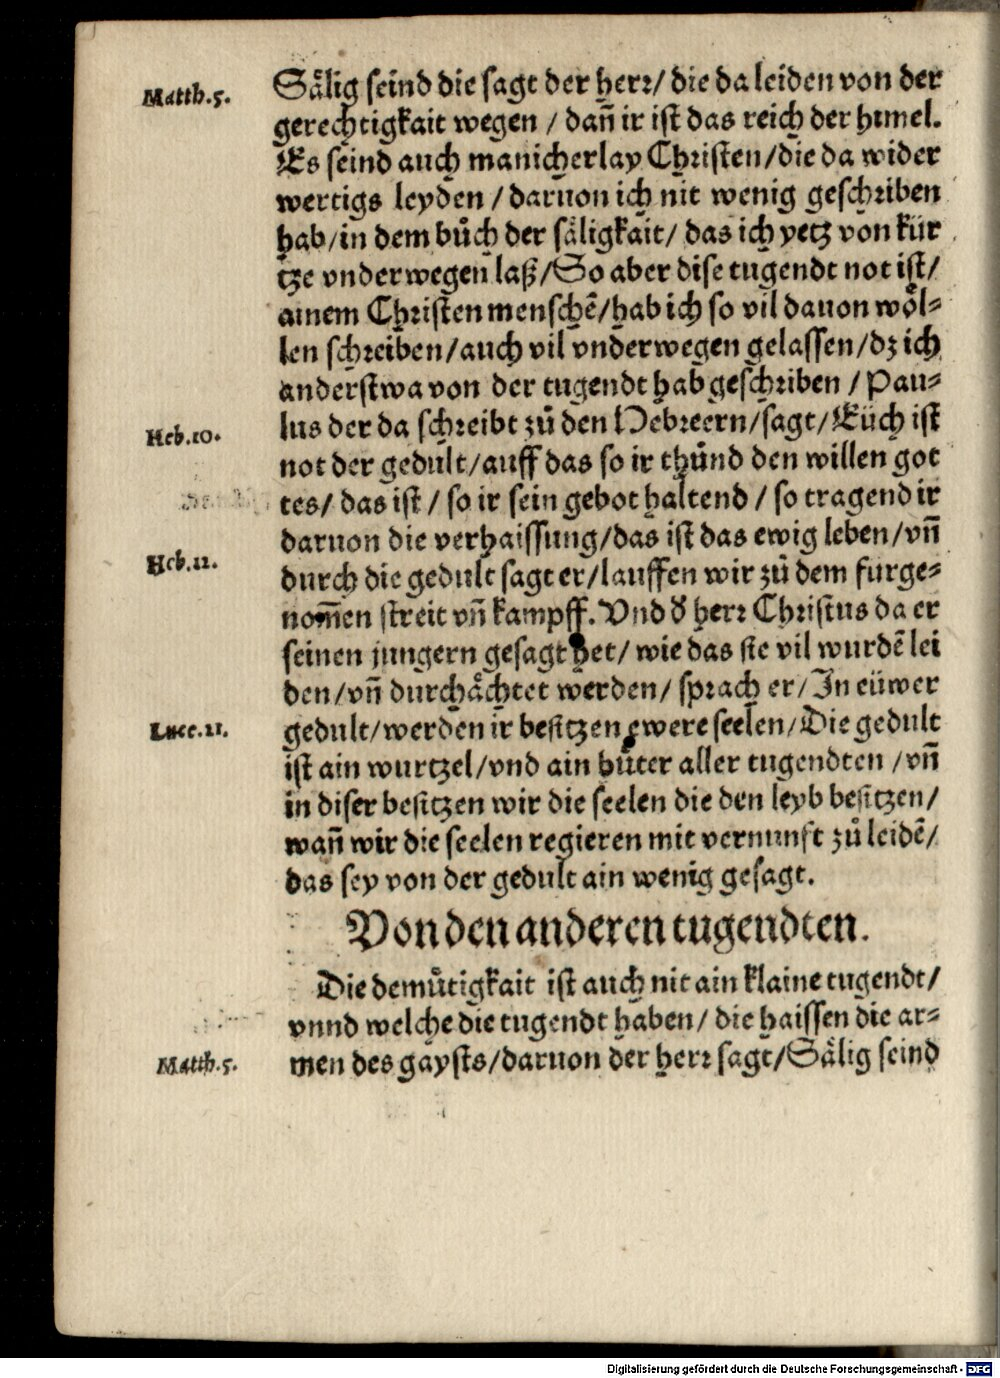 Matth.5.
Sålig seind die sagt der herr/ die da leiden von der
gerechtigkait wegen / dañ ir ist das reich der himel.
Es seind auch manicherlay Christen/die da wider
wertigs leyden / daruon ich nit wenig geschriben
hab/in dem bůch der såligkait/ das ich yetz von kür
tze vnderwegen laß/So aber dise tugendt not ist/
ainem Christen menschẽ/hab ich so vil dauon wöl-
len schreiben/auch vil vnderwegen gelassen/dz ich
anderstwa von der tugendt hab geschriben / Pau-
Heb.10.
lus der da schreibt zů den Hebreern/sagt/Eüch ist
not der gedult/auff das so ir thůnd den willen got
tes/ das ist / so ir sein gebot haltend / so tragend ir
daruon die verhaissung/das ist das ewig leben/vñ
Heb.12.
durch die gedult sagt er/lauffen wir zů dem fürge-
nom̃en streit vñ kampff. Vnd d̕ herr Christus da er
seinen jungern gesagt het/ wie das sie vil wurdẽ lei
den/vñ durchåchtet werden/ sprach er/ In eüwer
Luce.21.
gedult/werden ir besitzen ewere seelen/Die gedult
ist ain wurtzel/vnd ain hůter aller tugendten /vñ
in diser besitzen wir die seelen die den leyb besitzen/
wañ wir die seelen regieren mit vernunft zů leidẽ/
das sey von der gedult ain wenig gesagt.
Von den anderen tugendten.
Die demůtigkait ist auch nit ain klaine tugendt/
vnnd welche die tugendt haben/ die haissen die ar-
Matth.5.
men des gaysts/daruon der herr sagt/Sålig seind
Digitalisierung gefördert durch die Deutsche Forschungsgemeinschaft - DFG